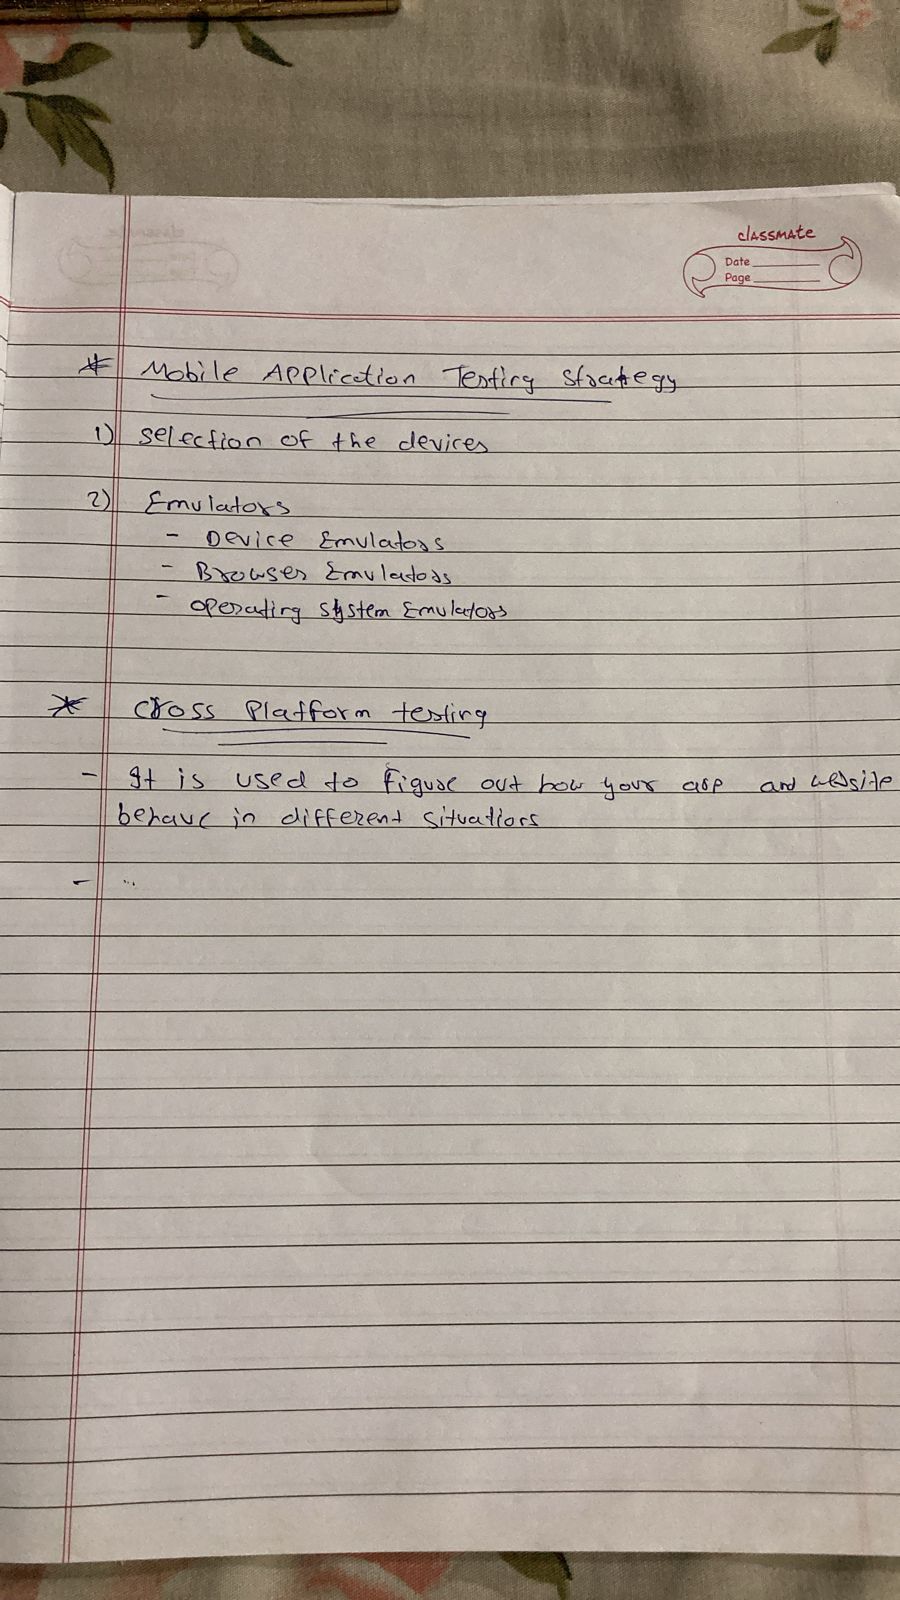 classmate
Date
Page
* Mobile Application Testing Strategy
1) selection of the devices
2) Emulators
- Device Emulators
- Browser Emulators
- operating system Emulators
* Cross Platform testing
- It is used to figure out how your app and website
behave in different situations
- ...